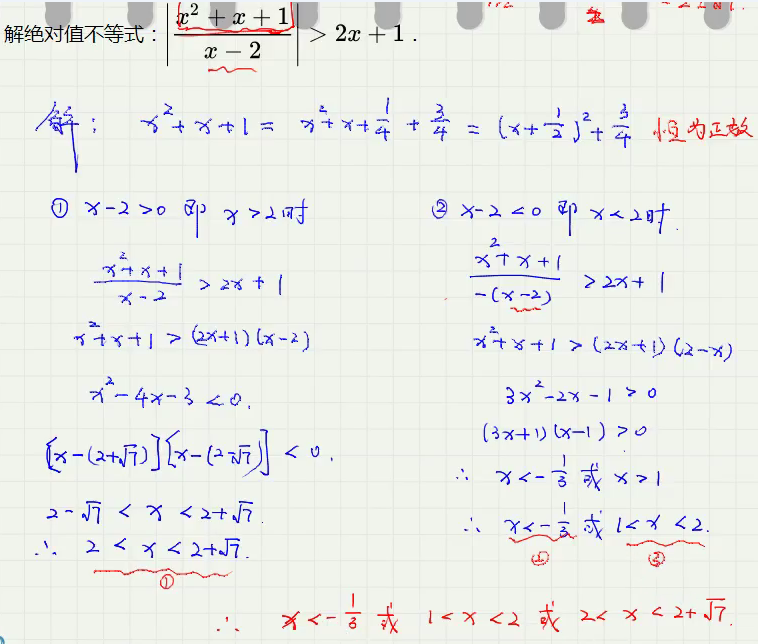 解绝对值不等式：|(x² + x + 1)/(x − 2)| > 2x + 1．
解： x²+x+1 = x²+x+1/4 + 3/4 = (x+1/2)²+3/4 恒为正数
① x-2>0 即 x>2时
(x²+x+1)/(x-2) > 2x+1
x²+x+1 > (2x+1)(x-2)
x²-4x-3<0.
[x-(2+√7)][x-(2-√7)] < 0.
2-√7 < x < 2+√7.
∴ 2 < x < 2+√7.
①
② x-2<0 即 x<2时.
(x²+x+1)/(-(x-2)) > 2x+1
x²+x+1 > (2x+1)(2-x)
3x²-2x-1>0
(3x+1)(x-1)>0
∴ x<-1/3 或 x>1
∴ x<-1/3 或 1<x<2.
② ②
∴ x<-1/3 或 1<x<2 或 2<x<2+√7.